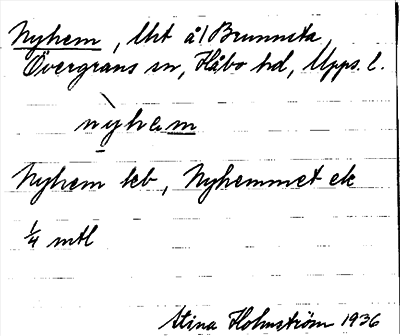 Nyhem, lht å/Brunnsta,
Övergrans sn, Håbo hd, Upps. l.
nỳhem
Nyhem teb, Nyhemmet ek
¼ mtl
Stina Holmström 1936